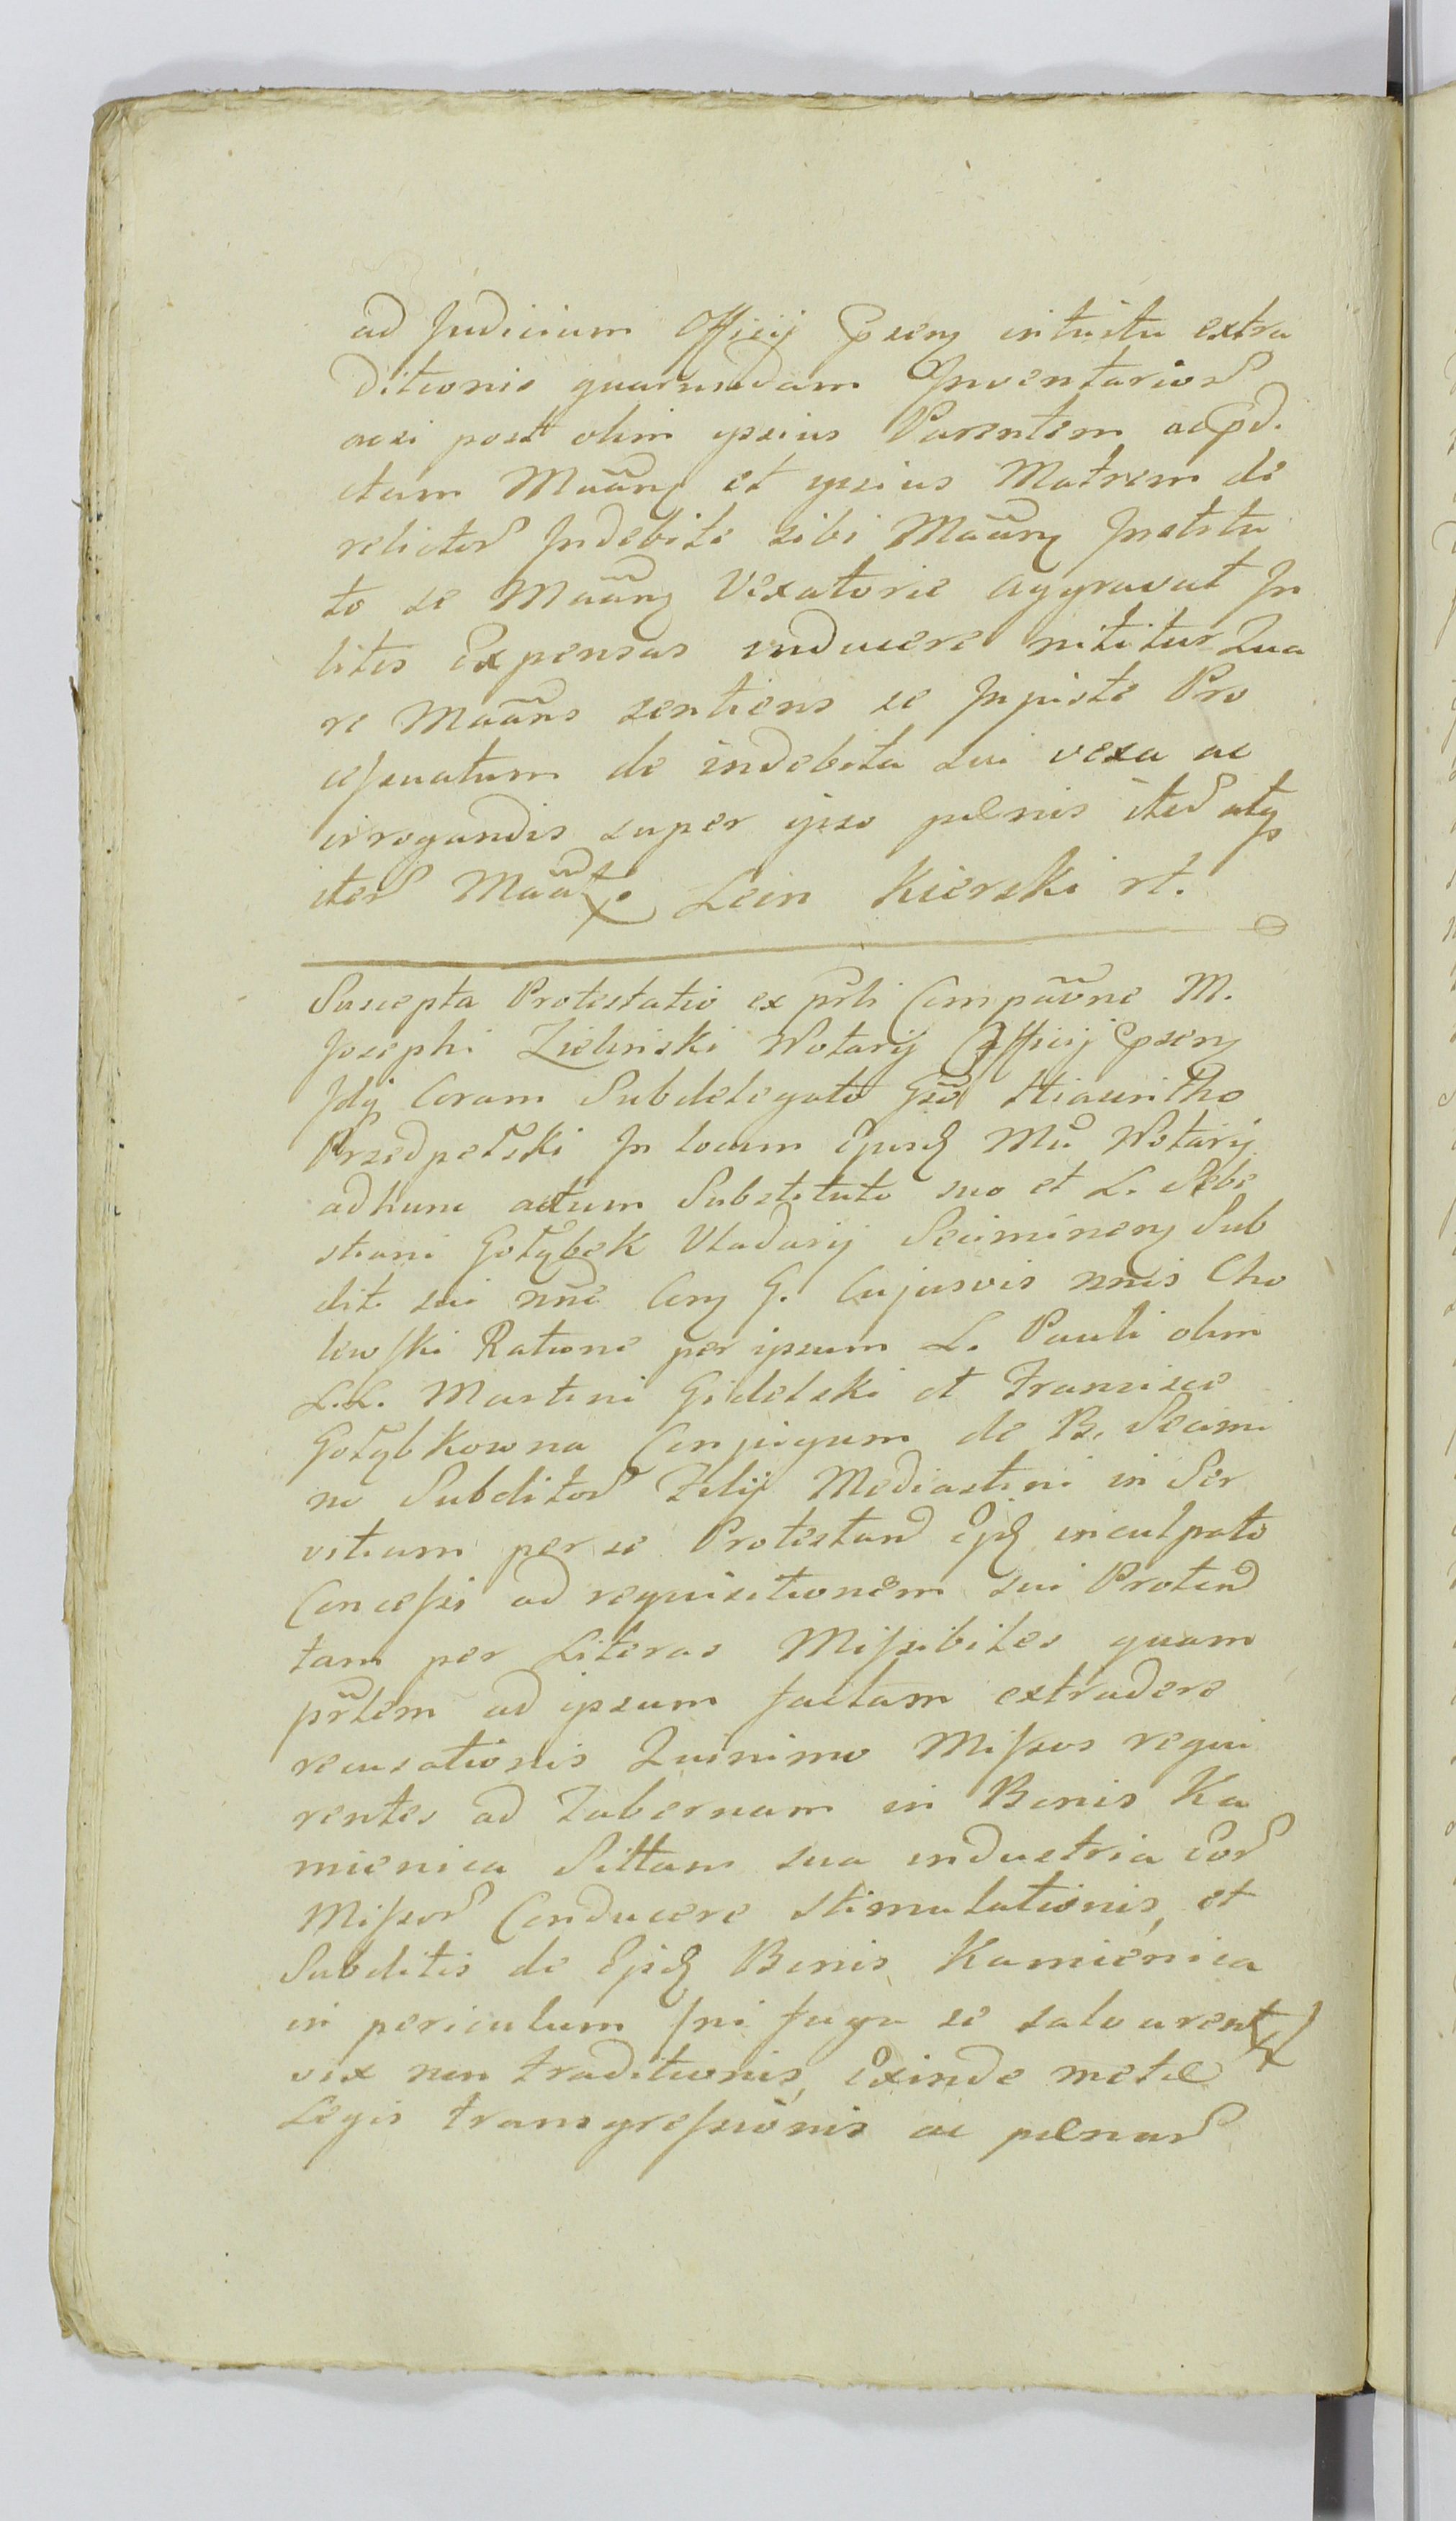 ad Judicium Officij Epseny intuitu extra
ditionis quarundam Inventarior
acsi post olim ipsius Parentem acpd.
ctum Maãny et ipsius Matrem de
relictor Indebite sibi Maãny Institu
to se Maãny Vexatorie aggravat In
litis Expensas inducere nititur Qua
re Maãns sentiens se Injuste Pro
cessuatum de indebita sui vexa ac
irrogandis super ipso pœnis iter atq
iter Maã Lein Kierski rt.
Suscepta Protestatio ex prli Compãvne M.
Josephi Zielinski Notarij Officij Epseny
Idij Coram Subdelegato Gso
Przedpełski In locum Ejusd Mci Notarij
adhunc actum Substituto suo et L. Seba
stiani Gołębek Vladarij Seciminen Sub
dit. sui nne Con G. Cujusvis nnis Cho
lewski Ratione per ipsum L. Pauli olim
L.L. Martini Gidelski et Francisce
Gołębkowna Conjugum de B. Secimi
no Subditor Filij Mediastini in Ser
vitium per se Protestand Ejd inculpato
Concessi ad requisitionem sui Protend
tam per Literas Missibiles quam
prlem ad ipsum factam extradere
recusationis Quinimo Missos requi
rentes ad Tabernam in Bonis Ka
mienica Sittam sua industria eor
Missor Conducere stimulationis, et
Subditis de Ejsd Bonis Kamienica
in periculum Ini fuga se salvarent
vix non traditionis, exinde metæ
Legis transgressionis ac pœnar